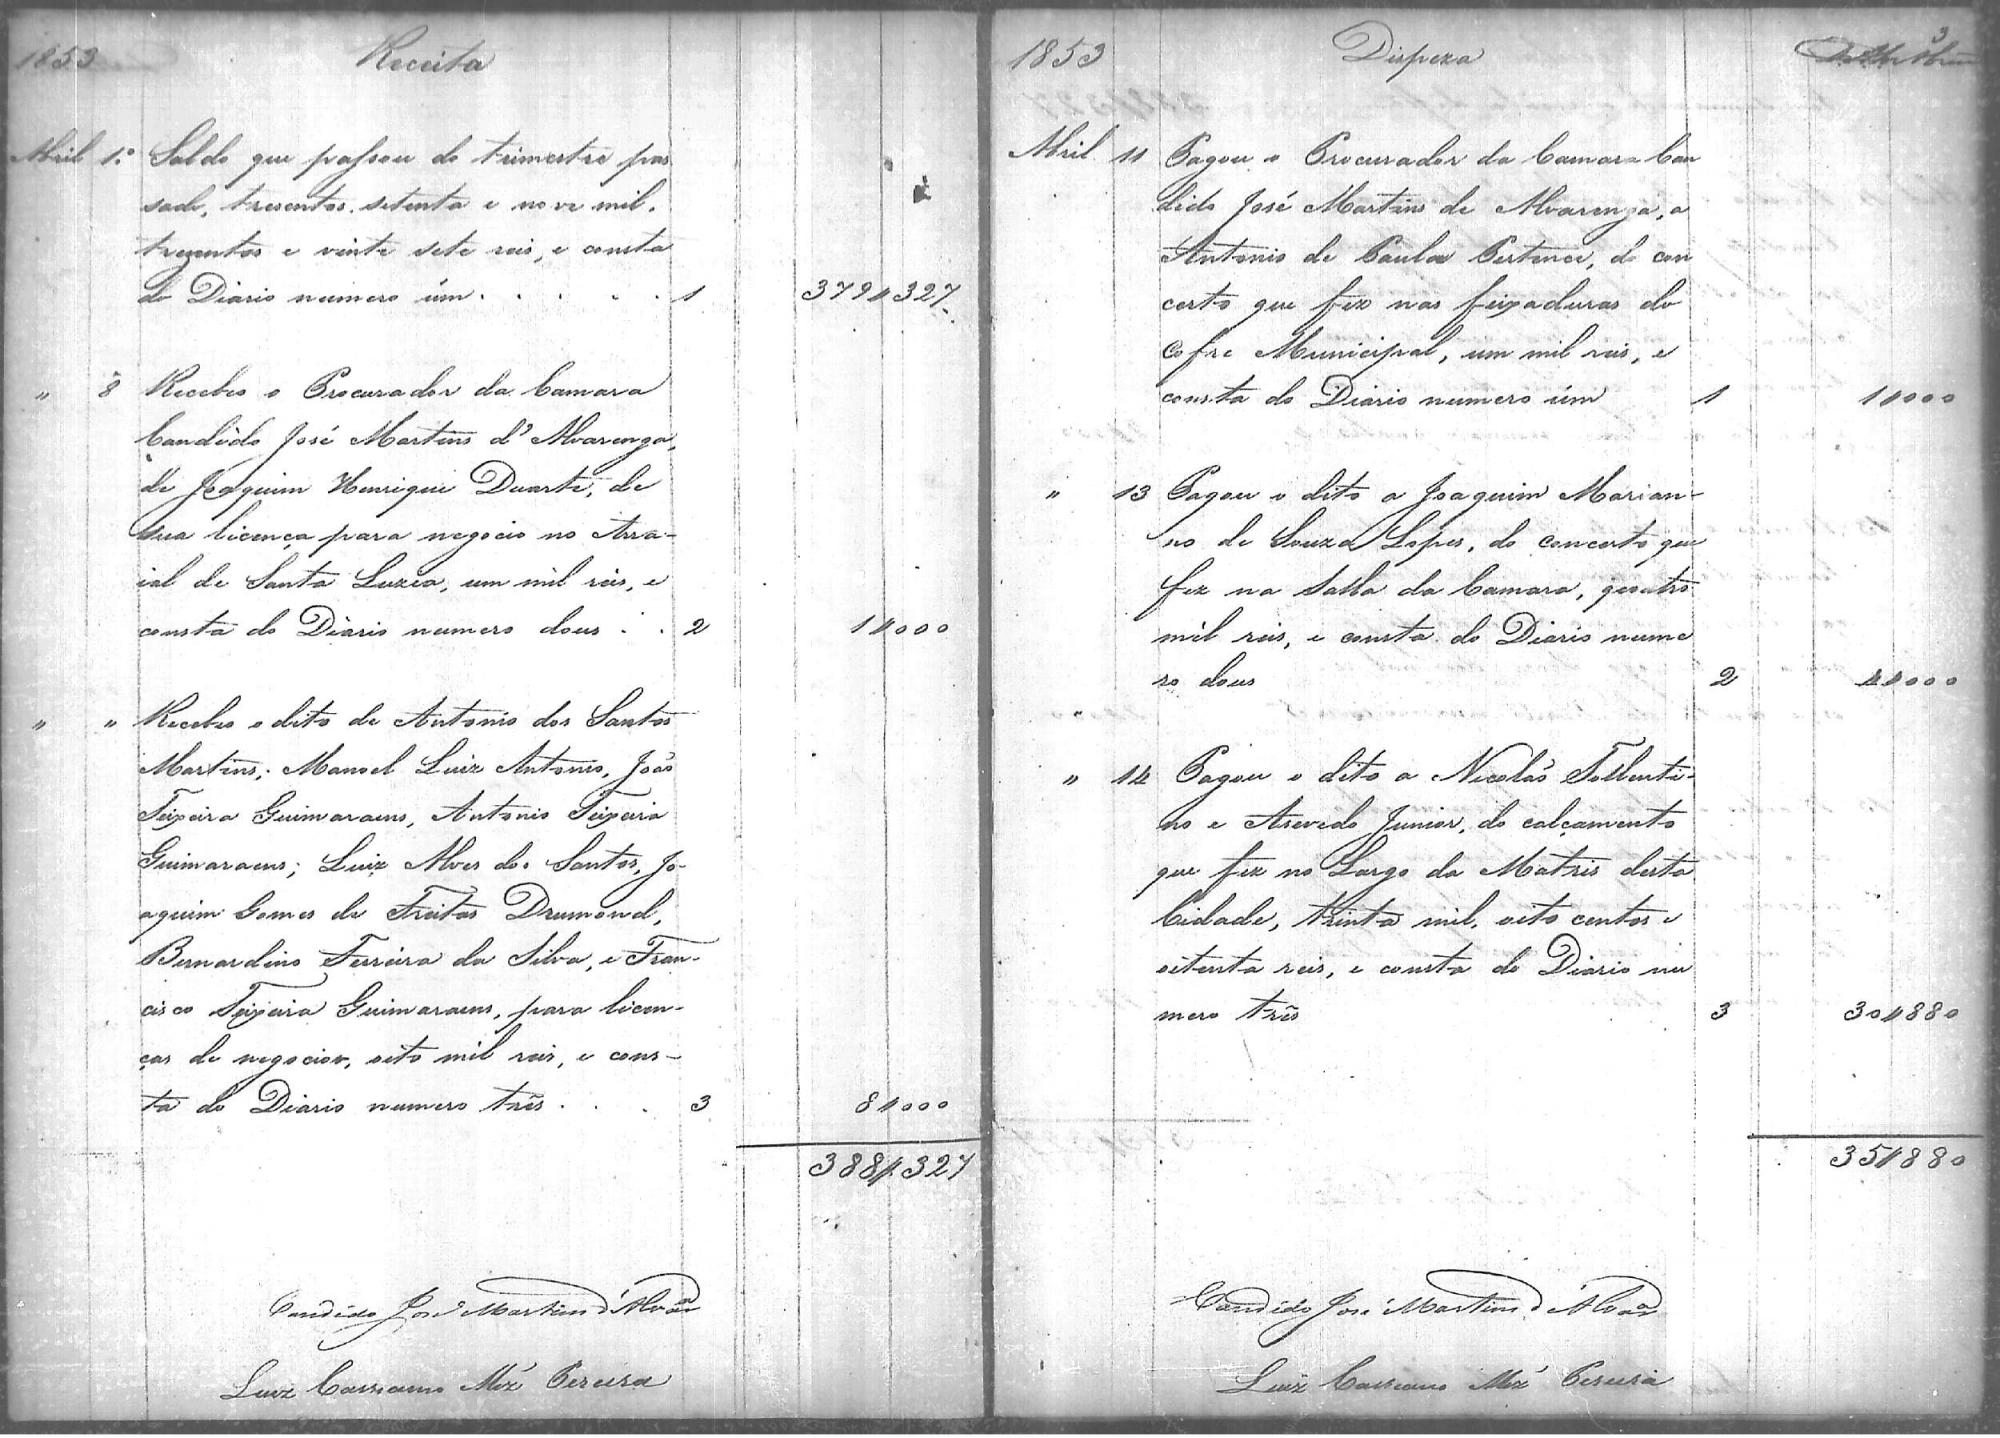 1853
Receita
Abril 1.º Saldo que passou do trimestre pas
sado, tresentos setenta e nove mil,
trezentos e vinte sete reis, e consta
do Diario numero úm . . . . . 1 379$327
" 8 Recebeo o Procurador da Camara
Candido José Martins d'Alvarenga,
de Joaquim Henrique Duarte, de
sua licença para negocio no Arra-
ial de Santa Luzia, um mil reis, e
consta do Diario numero dous . . 2 1$000
" " Recebeo o dito de Antonio dos Santos
Martins; Manoel Luiz Antonio, João
Teixeira Guimaraens, Antonio Teixeira
Guimaraens; Luiz Alves dos Santos, Jo-
aquim Gomes de Freitas Drumond,
Bernardino Ferreira da Silva, e Fran-
cisco Teixeira Guimaraens, para licen-
ças de negocios, oito mil reis, e cons-
ta do Diario numero três . . . 3 8$000
388$327
Candido José Martins d'Alvar
Luiz Cassiano Mız Pereira
1853
Dispeza
3
Abril 11 Pagou o Procurador da Camara Can
dido José Martins de Alvarenga, a
Antonio de Paula Pertence, do con
certo que fez nas feixaduras do
Cofre Municipal, um mil reis, e
consta do Diario numero úm 1 1$000
" 13 Pagou o dito a Joaquim Marian-
no de Souza Lopes, do concerto que
fez na Salla da Camara, quatro
mil reis, e consta do Diario nume
ro dous 2 4$000
" 14 Pagou o dito a Nicolás Tollenti-
no e Asevedo Junior, do calçamento
que fez no Largo da Matris desta
Cidade, trinta mil, oito centos e
oitenta reis, e consta do Diario nu
mero três 3 30$880
35$880
Candido José Martins d'Alvar
Luiz Cassiano Mız Pereira